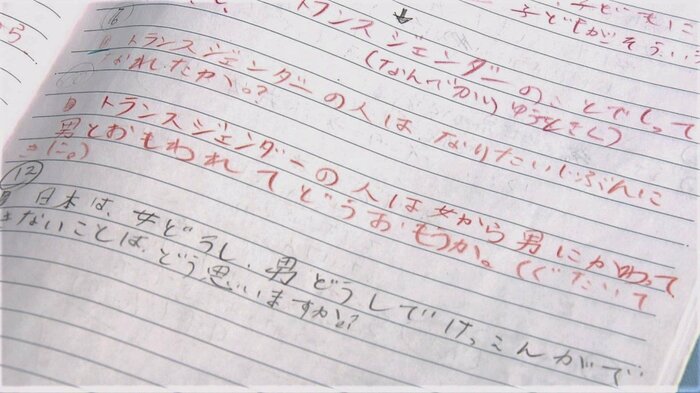 から
子どもに
子どもがそういう
(6)
トランスジェンダーの
(なんでかり
トランスジェンダーの人は なりたいじぶんに
なれしたか。?
トランスジェンダーの人は 女から 男にかわって
男とおもわれてどうおもうか。(ぐたいて
きに。)
(12)
日本は、女どうし、男どうしでけっこんがで
きないことは、どう思いますか?